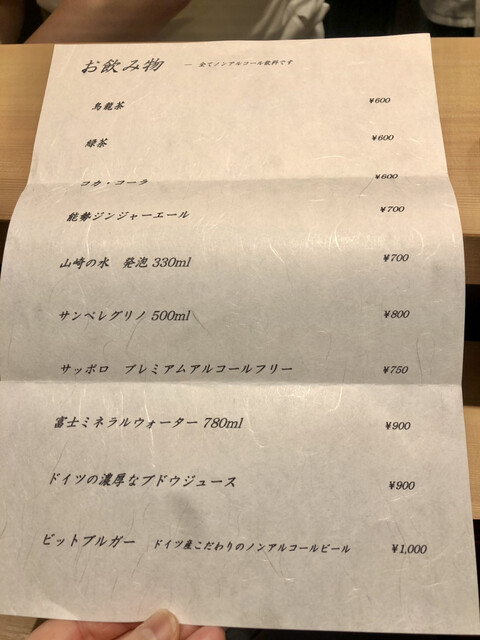 お飲み物 — 全てノンアルコール飲料です
烏龍茶 ¥600
緑茶 ¥600
コカ・コーラ ¥600
能勢ジンジャーエール ¥700
山崎の水 発泡 330ml ¥700
サンペレグリノ 500ml ¥800
サッポロ プレミアムアルコールフリー ¥750
富士ミネラルウォーター 780ml ¥900
ドイツの濃厚なブドウジュース ¥900
ビットブルガー ドイツ産こだわりのノンアルコールビール ¥1,000